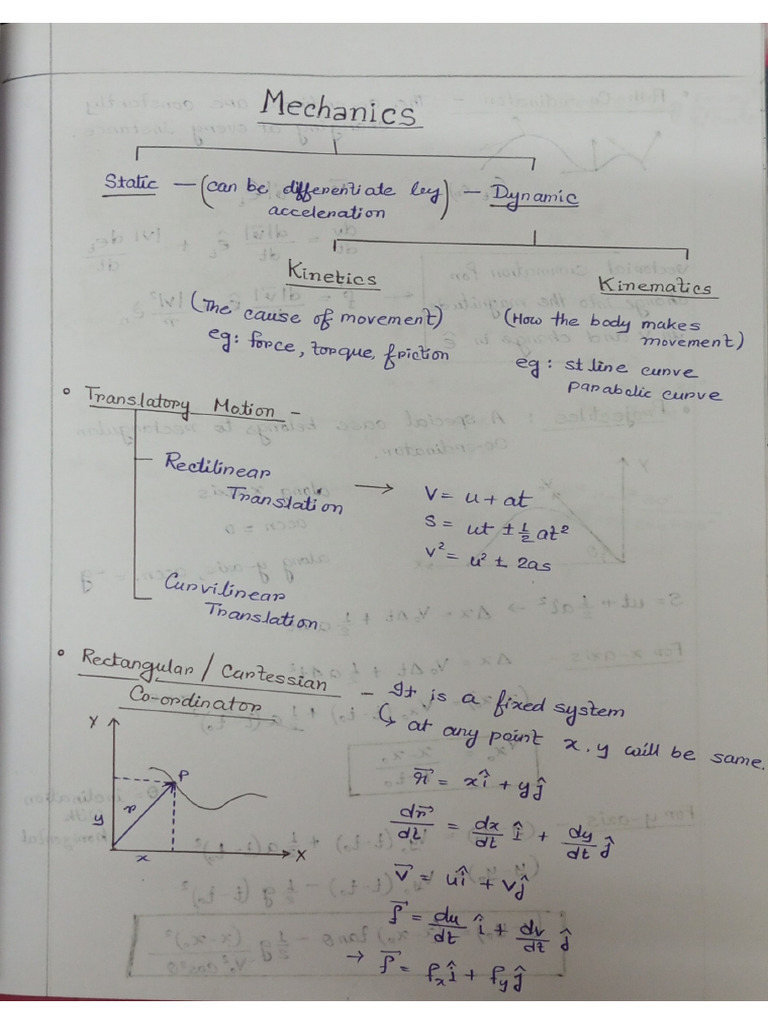 Mechanics
Static – (can be differentiate by acceleration) – Dynamic
Kinetics
(The cause of movement)
eg: force, torque, friction
Kinematics
(How the body makes movement)
eg: st line curve
parabolic curve
• Translatory Motion –
Rectilinear
Translation
→ V = u + at
S = ut ± 1/2 at²
V² = u² ± 2as
Curvilinear
Translation
• Rectangular / Cartessian
Co-ordinator
– It is a fixed system
↳ at any point x, y will be same.
Y
P
y
r
x
X
r⃗ = xî + yĵ
dr⃗/dt = dx/dt î + dy/dt ĵ
V⃗ = uî + vĵ
f⃗ = du/dt î + dv/dt ĵ
→ f⃗ = fₓî + fᵧĵ